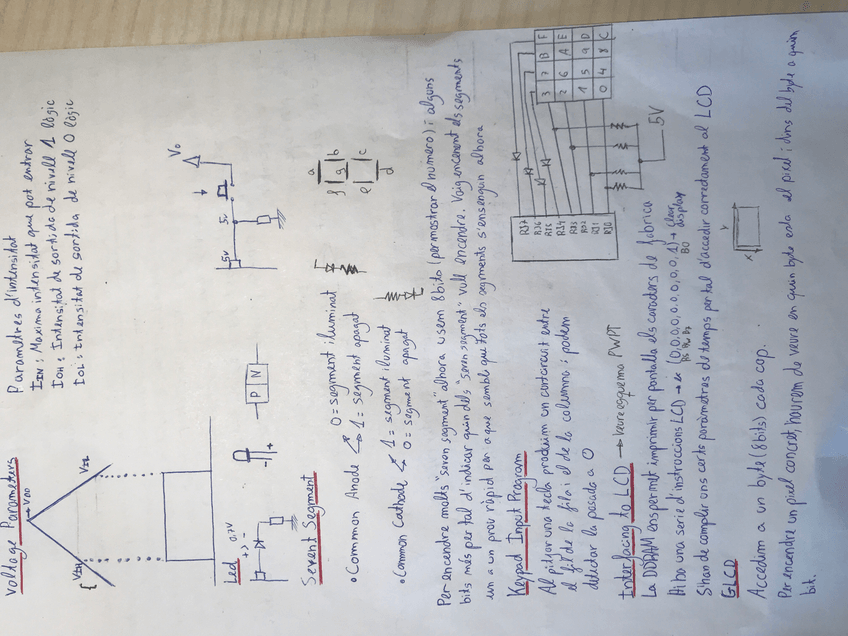 Voltage Parameters
VIH
VDD
VIL
Paràmetres d'intensitat
IIN: Maxima intensitat que pot entrar
IOH: Intensitat de sortida de nivell 1 lògic
IOL: Intensitat de sortida de nivell 0 lògic
Led
0.7V
+ -
- +
P N
5V
Vo
Sevent Segment
• Common Anode
0 = segment iluminat
1 = segment apagat
• Common Cathode
1 = segment iluminat
0 = segment apagat
a
f g b
e c
d
Per encendre molts "seven segment" alhora usem 8bits (per mostrar el numero) i alguns
bits més per tal d'indicar quin dels "seven segment" vull encendre. Vaig encenent els segments
un a un prou ràpid per a que sembli que tots els segments s'ensenguin alhora
Keypad Input Program
Al pitjar una tecla produim un curtcircuit entre
el fil de la fila i el de la columna i podem
detectar la posada a 0
RJ7
RJ6
RJ5
RJ4
RJ3
RJ2
RJ1
RJ0
3 7 B F
2 6 A E
1 5 9 D
0 4 8 C
5V
Interfacing to LCD → veure esquema PWPT
La DDRAM ens permet imprimir per pantalla els caracters de fabrica
Hi ha una serie d'instruccions LCD → ex (0,0,0,0,0,0,0,0,0,1) → clear display
RS RW B7 B0
S'han de complir uns certs paràmetres de temps per tal d'accedir correctament al LCD
GLCD
X
Y
Accedum a un byte (8bits) cada cop.
Per encendre un pixel concret, haurem de veure en quin byte esta el pixel i dins del byte a quin
bit.